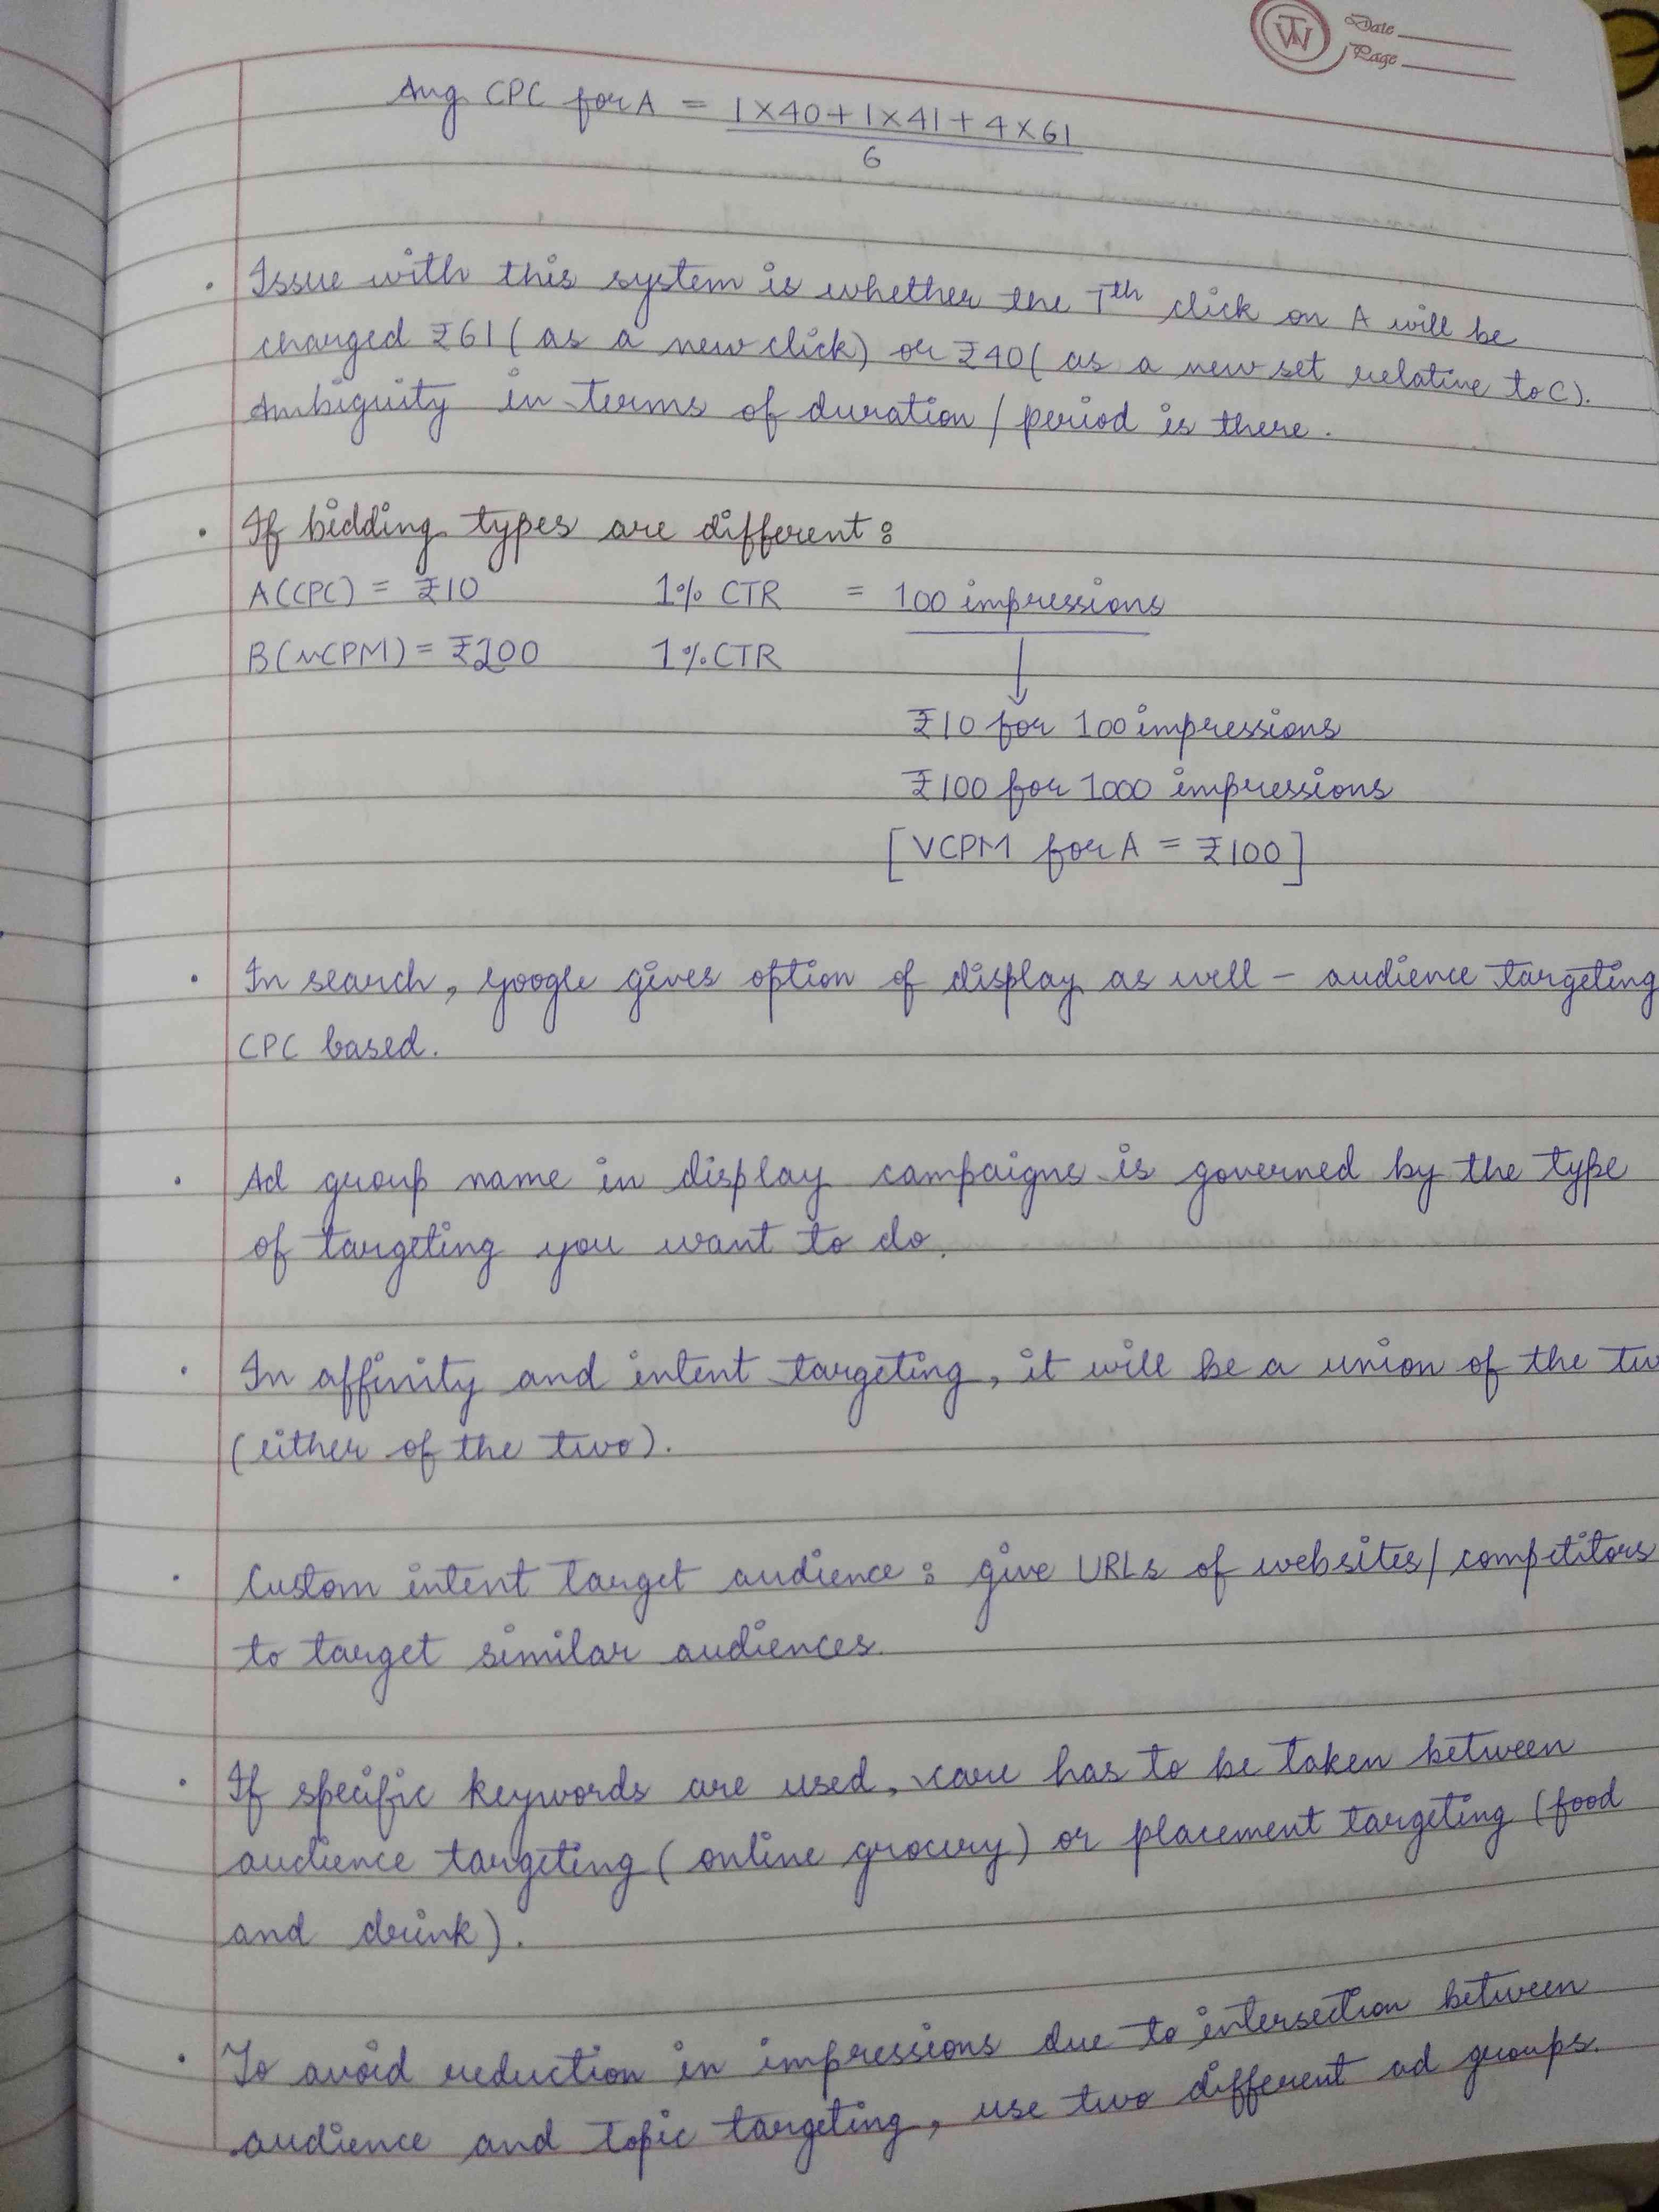 TW
Date
Page
Avg CPC for A = 1×40+1×41+4×61
6
. Issue with this system is whether the 7th click on A will be
charged ₹61 (as a new click) or ₹40 (as a new set relative to C).
Ambiguity in terms of duration / period is there.
. If bidding types are different :
A(CPC) = ₹10 1% CTR = 100 impressions
B(vCPM) = ₹200 1% CTR
↓
₹10 for 100 impressions
₹100 for 1000 impressions
[VCPM for A = ₹100]
. In search, google gives option of display as well – audience targeting
CPC based.
. Ad group name in display campaigns is governed by the type
of targeting you want to do.
. In affinity and intent targeting, it will be a union of the tw
(either of the two).
. Custom intent target audience : give URLs of websites/competitors
to target similar audiences.
. If specific keywords are used, care has to be taken between
audience targeting (online grocery) or placement targeting (food
and drink).
. To avoid reduction in impressions due to intersection between
audience and topic targeting, use two different ad groups.